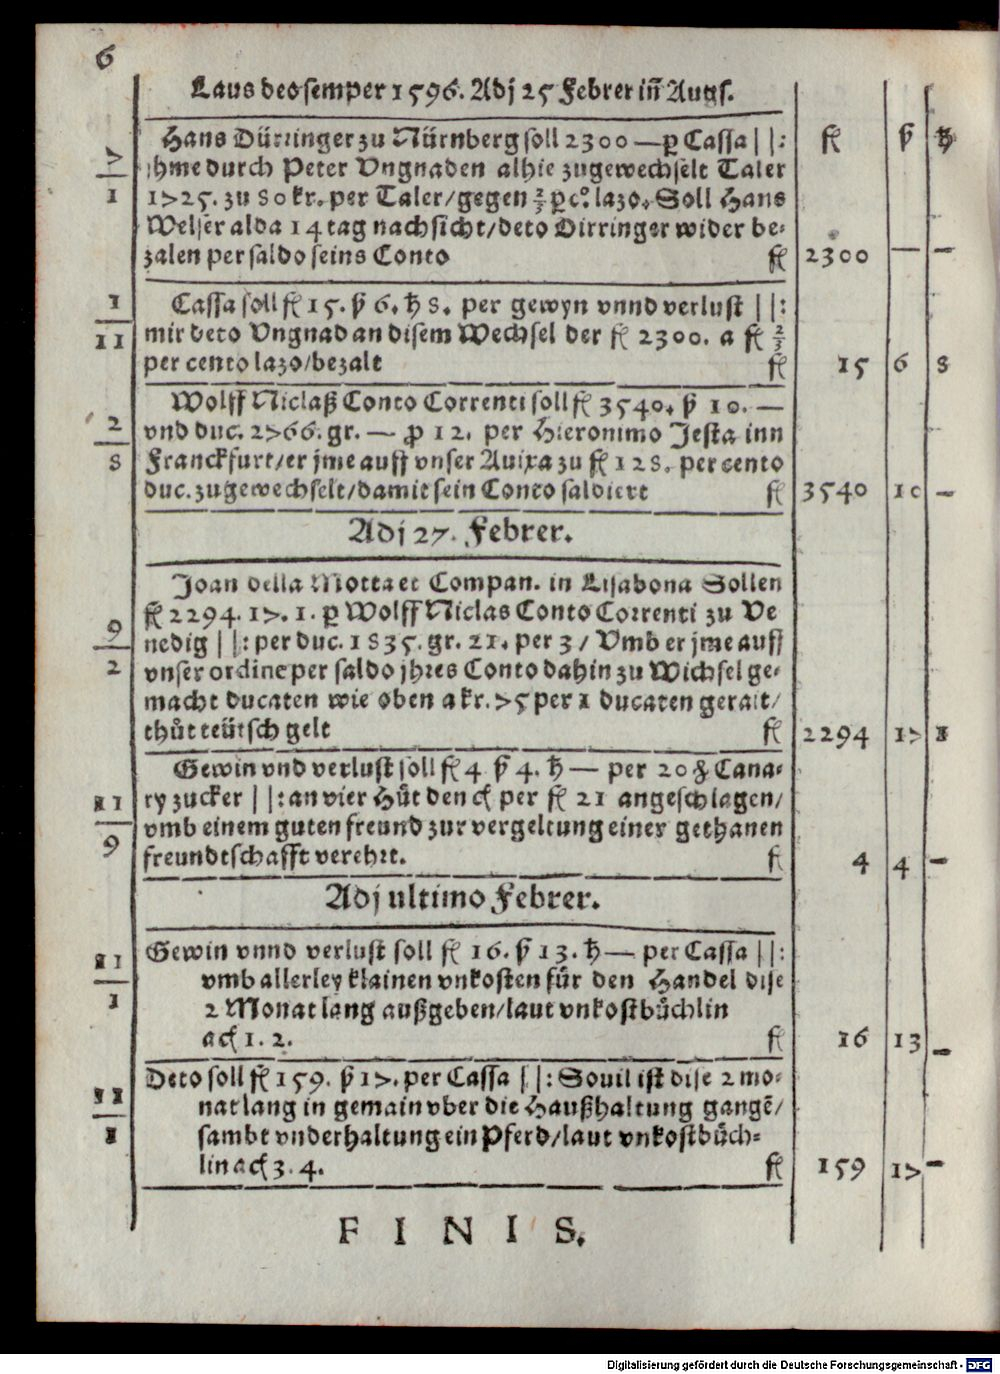 6
Laus deo semper 1596. Adj 25 Febrer in̄ Augs.
fl ß ₰
7/1
Hans Dürringer zu Nürnberg soll 2300 — p Cassa ||:
ihme durch Peter Vngnaden alhie zugewechselt Taler
1725. zu 80 kr. per Taler/gegen ⅔ p cº. lazo. Soll Hans
Welser alda 14 tag nachsicht/deto Dirringer wider be-
zalen per saldo seins Conto fl 2300 — —
1/11
Cassa soll fl 15. ß 6. ₰ 8. per gewyn vnnd verlust ||:
mir deto Vngnad an disem Wechsel der fl 2300. a fl ⅔
per cento lazo/bezalt fl 15 6 8
2/8
Wolff Niclaß Conto Correnti soll fl 3540. ß 10. —
vnd duc. 2766. gr. — p 12. per Hieronimo Jesta inn
Franckfurt/er jme auff vnser Auixa zu fl 128. per cento
duc. zugewechselt/damit sein Conto saldiert fl 3540 10 —
Adj 27. Febrer.
9/2
Joan della Motta et Compan. in Lisabona Sollen
fl 2294. 17. 1. p Wolff Niclas Conto Correnti zu Ve
nedig ||: per duc. 1835. gr. 21. per 3/ Vmb er jme auff
vnser ordine per saldo jhres Conto dahin zu Wichsel ge-
macht ducaten wie oben a kr. 75 per 1 ducaten gerait/
thůt teütsch gelt fl 2294 17 1
11/9
Gewin vnd verlust soll fl 4 ß 4. ₰ — per 20 ℔ Cana-
ry zucker ||: an vier Hůt den c per fl 21 angeschlagen/
vmb einem guten freund zur vergeltung einer gethanen
freundtschafft verehrt. fl 4 4 —
Adj ultimo Febrer.
11/1
Gewin vnnd verlust soll fl 16. ß 13. ₰ — per Cassa ||:
vmb allerley klainen vnkosten für den Handel dise
2 Monat lang außgeben/laut vnkostbůchlin
ac 1. 2. fl 16 13 —
11/1
Deto soll fl 159. ß 17. per Cassa ||: Souil ist dise 2 mo-
nat lang in gemain vber die Haußhaltung gangē/
sambt vnderhaltung ein Pferd/laut vnkostbůch-
lin ac 3. 4. fl 159 17 —
FINIS.
Digitalisierung gefördert durch die Deutsche Forschungsgemeinschaft - DFG